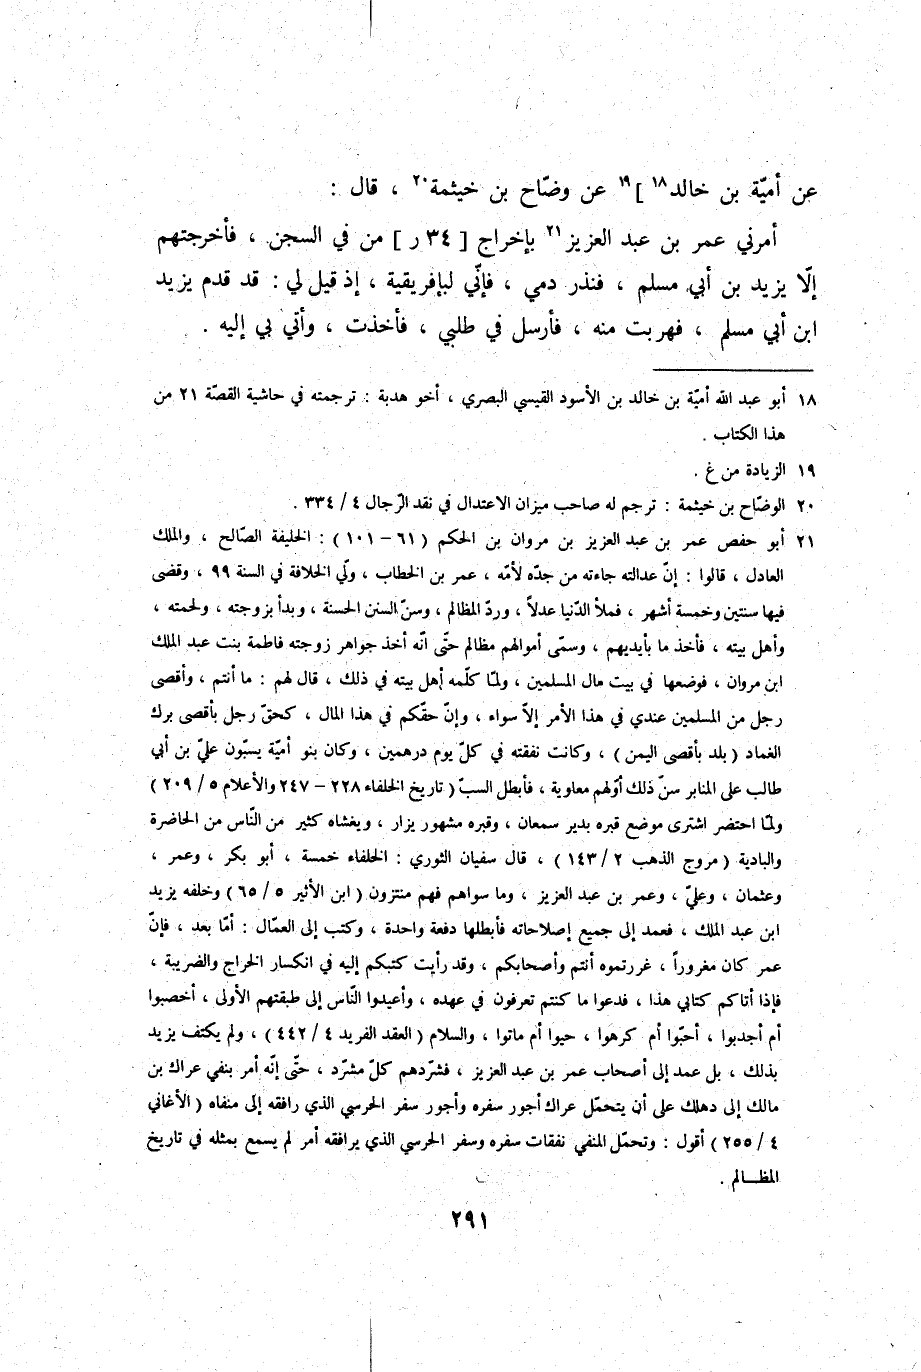 عن أميّة بن خالد١٨ ]١٩ عن وضّاح بن خيثمة٢٠ ، قال :
أمرني عمر بن عبد العزيز٢١ بإخراج [ ٣٤ ر ] من في السجن ، فأخرجتهم
إلّا يزيد بن أبي مسلم ، فنذر دمي ، فإنّي لبإفريقية ، إذ قيل لي : قد قدم يزيد
ابن أبي مسلم ، فهربت منه ، فأرسل في طلبي ، فأخذت ، وأتي بي إليه .
١٨ أبو عبد الله أميّة بن خالد بن الأسود القيسي البصري ، أخو هدبة : ترجمته في حاشية القصّة ٢١ من
هذا الكتاب .
١٩ الزيادة من غ .
٢٠ الوضّاح بن خيثمة : ترجم له صاحب ميزان الاعتدال في نقد الرّجال ٤ / ٣٣٤ .
٢١ أبو حفص عمر بن عبد العزيز بن مروان بن الحكم ( ٦١ – ١٠١ ) : الخليفة الصّالح ، والملك
العادل ، قالوا : إنّ عدالته جاءته من جدّه لأمّه ، عمر بن الخطاب ، ولّي الخلافة في السنة ٩٩ ، وقضى
فيها سنتين وخمسة أشهر ، فملأ الدّنيا عدلاً ، وردّ المظالم ، وسنّ السنن الحسنة ، وبدأ بزوجته ، ولحمته ،
وأهل بيته ، فأخذ ما بأيديهم ، وسمّى أموالهم مظالم حتّى أنّه أخذ جواهر زوجته فاطمة بنت عبد الملك
ابن مروان ، فوضعها في بيت مال المسلمين ، ولمّا كلّمه أهل بيته في ذلك ، قال لهم : ما أنتم ، وأقصى
رجل من المسلمين عندي في هذا الأمر إلاّ سواء ، وإنّ حقّكم في هذا المال ، كحقّ رجل بأقصى برك
الغماد ( بلد بأقصى اليمن ) ، وكانت نفقته في كلّ يوم درهمين ، وكان بنو أميّة يسبّون عليّ بن أبي
طالب على المنابر سنّ ذلك أوّلهم معاوية ، فأبطل السبّ ( تاريخ الخلفاء ٢٢٨ – ٢٤٧ والأعلام ٥ / ٢٠٩ )
ولمّا احتضر اشترى موضع قبره بدير سمعان ، وقبره مشهور يزار ، ويغشاه كثير من النّاس من الحاضرة
والبادية ( مروج الذهب ٢ / ١٤٣ ) ، قال سفيان الثوري : الخلفاء خمسة ، أبو بكر ، وعمر ،
وعثمان ، وعليّ ، وعمر بن عبد العزيز ، وما سواهم فهم منتزون ( ابن الأثير ٥ / ٦٥ ) وخلفه يزيد
ابن عبد الملك ، فعمد إلى جميع إصلاحاته فأبطلها دفعة واحدة ، وكتب إلى العمّال : أمّا بعد ، فإنّ
عمر كان مغروراً ، غررتموه أنتم وأصحابكم ، وقد رأيت كتبكم إليه في انكسار الخراج والضريبة ،
فإذا أتاكم كتابي هذا ، فدعوا ما كنتم تعرفون في عهده ، وأعيدوا النّاس إلى طبقتهم الأولى ، أخصبوا
أم أجدبوا ، أحبّوا أم كرهوا ، حيوا أم ماتوا ، والسلام ( العقد الفريد ٤ / ٤٤٢ ) ، ولم يكتف يزيد
بذلك ، بل عمد إلى أصحاب عمر بن عبد العزيز ، فشرّدهم كلّ مشرّد ، حتّى إنّه أمر بنفي عراك بن
مالك إلى دهلك على أن يتحمّل عراك أجور سفره وأجور سفر الحرسي الذي رافقه إلى منفاه ( الأغاني
٤ / ٢٥٥ ) أقول : وتحمّل المنفي نفقات سفره وسفر الحرسي الذي يرافقه أمر لم يسمع بمثله في تاريخ
المظـالم .
٢٩١